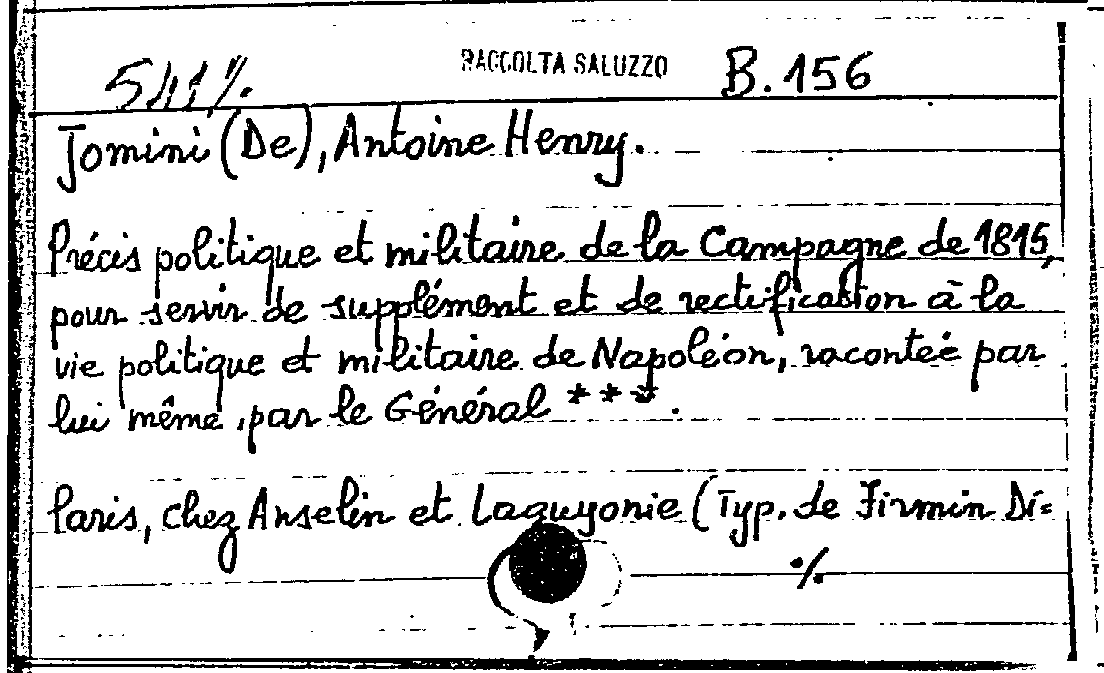 541 %. RACCOLTA SALUZZO B. 156
Jomini (De), Antoine Henry.
Précis politique et militaire de la Campagne de 1815,
pour servir de supplément et de rectification à la
vie politique et militaire de Napoléon, racontée par
lui même, par le Général ***.
Paris, chez Anselin et Laguyonie (Typ. de Firmin Di=
%.